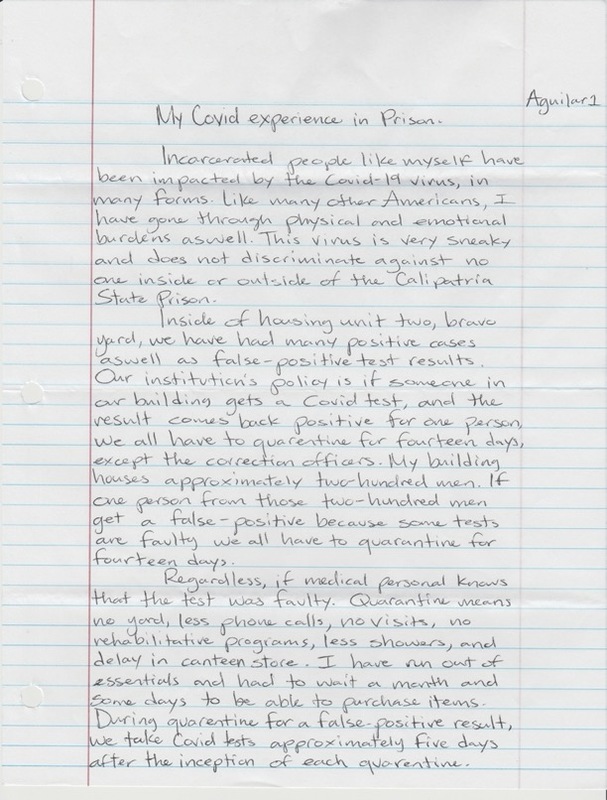 Aguilar 1
My Covid experience in Prison.
Incarcerated people like myself have
been impacted by the Covid-19 virus, in
many forms. Like many other Americans, I
have gone through physical and emotional
burdens aswell. This virus is very sneaky
and does not discriminate against no
one inside or outside of the Calipatria
State Prison.
Inside of housing unit two, bravo
yard, we have had many positive cases
aswell as false-positive test results.
Our institution's policy is if someone in
our building gets a Covid test, and the
result comes back positive for one person,
we all have to quarentine for fourteen days,
except the correction officers. My building
houses approximately two-hundred men. If
one person from those two-hundred men
get a false-positive because some tests
are faulty we all have to quarentine for
fourteen days.
Regardless, if medical personal knows
that the test was faulty. Quarantine means
no yard, less phone calls, no visits, no
rehabilitative programs, less showers, and
delay in canteen store. I have run out of
essentials and had to wait a month and
some days to be able to purchase items.
During quarentine for a false-positive result,
we take Covid tests approximately five days
after the inception of each quarentine.